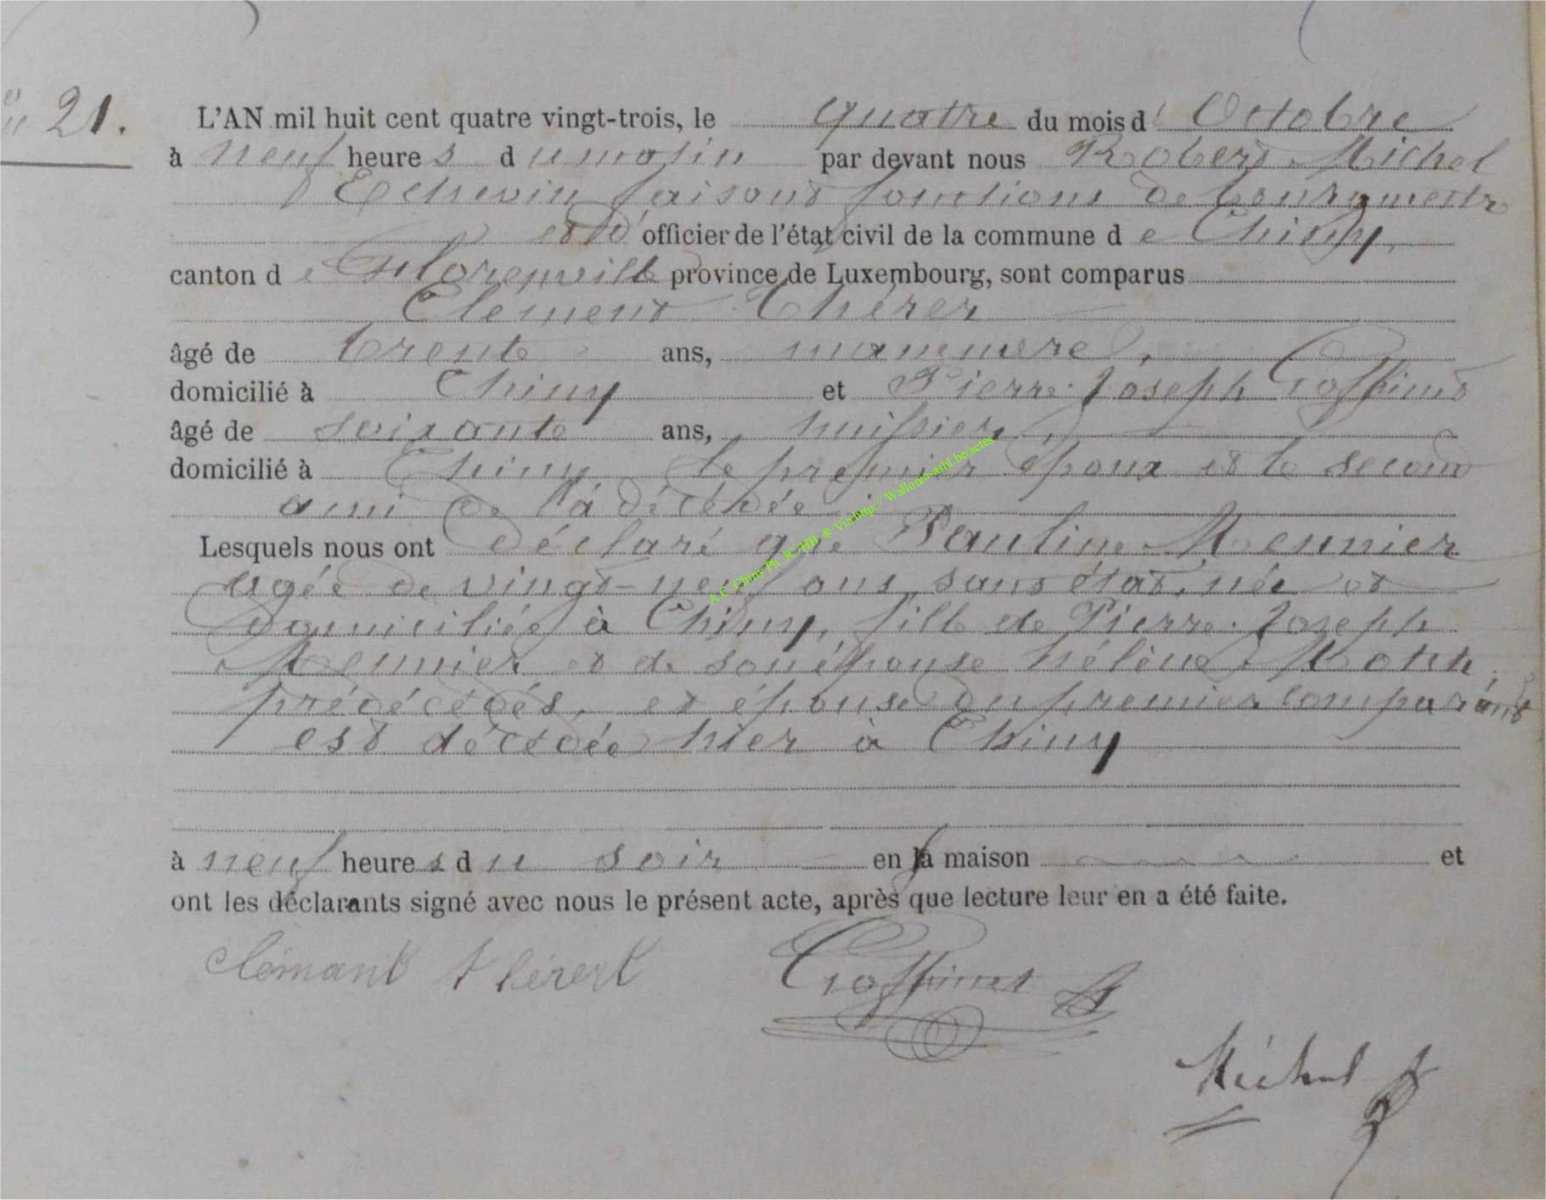 N° 21.
L'AN mil huit cent quatre vingt-trois, le quatre du mois d'Octobre
à neuf heures du matin par devant nous Robert Michel
Echevin faisant fonctions de bourgmestre
et d'officier de l'état civil de la commune de Chiny,
canton de Florenville province de Luxembourg, sont comparus
Clément Thérer
âgé de trente ans, manœuvre,
domicilié à Chiny et Pierre-Joseph Goffinet
âgé de soixante ans, huissier,
domicilié à Chiny le premier époux et le second
ami de la décédée
Lesquels nous ont déclaré que Pauline Meunier
agée de vingt-neuf ans, sans état, née et
domiciliée à Chiny, fille de Pierre-Joseph
Meunier et de son épouse hélène
prédécédés, et épouse du premier comparant
est décédée hier à Chiny
à neuf heures du soir en la maison et
ont les déclarants signé avec nous le présent acte, après que lecture leur en a été faite.
Clémant thérert Goffinet
Michel